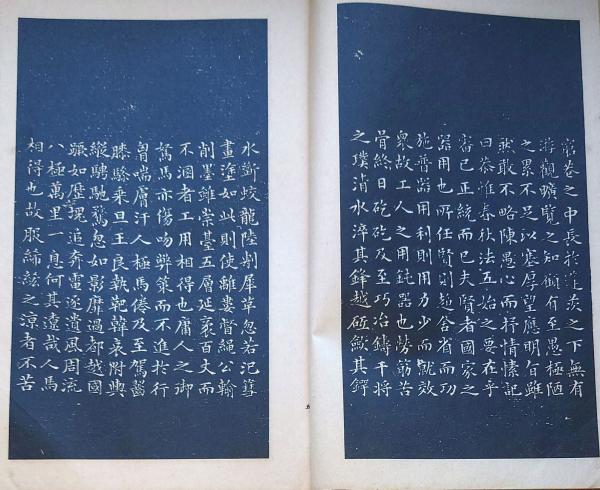 窮巷之中長於蓬茨之下無有
游觀曠覽之知顧有至愚極陋
之累不足以塞厚望應明旨雖
然敢不略陳愚心而抒情愫記
曰恭惟春秋法五始之要在乎
審己正統而已夫賢者國家之
器用也所任賢則趨舍省而功
施普器用利則用力少而就效
衆故工人之用鈍器也勞筋苦
骨終日矻矻及至巧冶鑄干將
之璞清水淬其鋒越砥斂其鍔
水斷蛟龍陸剸犀革忽若汜篲
畫塗如此則使離婁督繩公輸
削墨雖崇臺五層延袤百丈而
不溷者工用相得也庸人之御
駑馬亦傷吻弊策而不進於行
胷喘膚汗人極馬倦及至駕齧
膝驂乘旦王良執靶韓哀附輿
縱騁馳騖忽如影靡過都越國
蹶如歷塊追奔電逐遺風周流
八極萬里一息何其遼哉人馬
相得也故服絺綌之涼者不苦